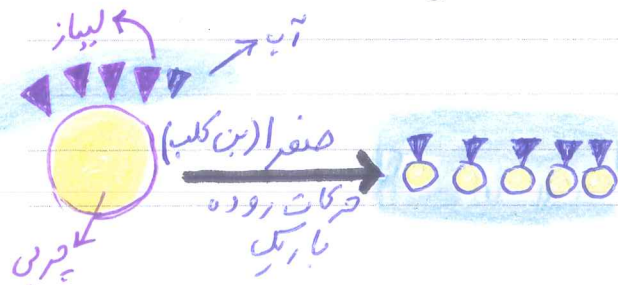 لیپاز
آب
صفرا (بدن کلب)
حرکات روده
باریک
چربی